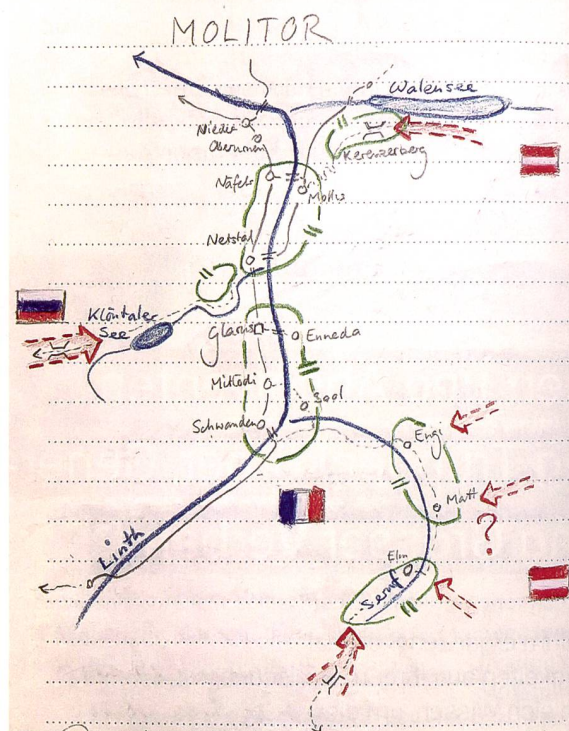 MOLITOR
Walensee
Niedu
Oberurnen
Kerenzerberg
Näfels
Mollis
Netstal
Klöntaler
See
Glarus
Enneda
Mitlödi
Sool
Schwanden
Engi
Matt
?
Linth
Elm
Sernf